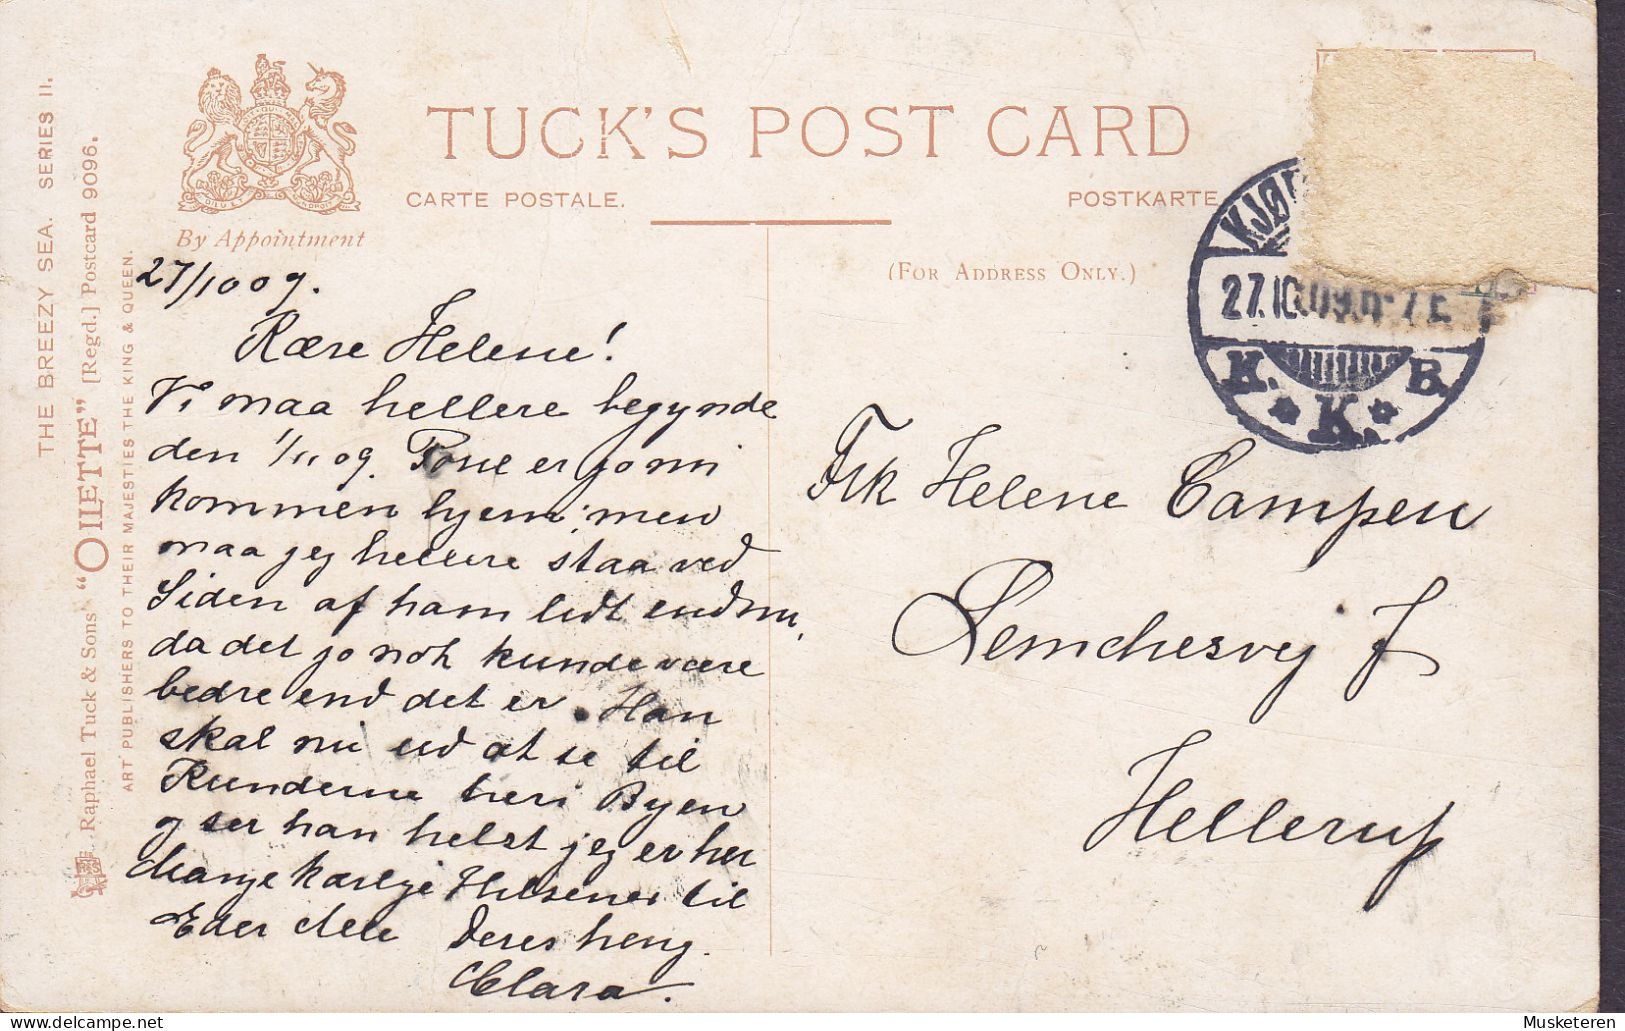 THE BREEZY SEA. SERIES II.
Raphael Tuck & Sons' "OILETTE" [Regd.] Postcard 9096.
ART PUBLISHERS TO THEIR MAJESTIES THE KING & QUEEN.
By Appointment
TUCK'S POST CARD
CARTE POSTALE.
POSTKARTE
(FOR ADDRESS ONLY.)
KJØ
27.10.09.
K. B.
K.
27/10 09.
Kære Helene!
Vi maa hellere begynde
den 1/11 09. Poul er jo nu
kommen hjem, men
maa jeg hellere staa ved
Siden af ham lidt endnu,
da det jo nok kunde være
bedre end det er. Han
skal nu ud at se til
Kunderne her i Byen
og ser han helst jeg er her
Mange kærlige Hilsener til
Eder alle Deres heng.
Clara.
Frk Helene Campen
Lemchesvej 7
Hellerup
Musketeren @ delcampe.net